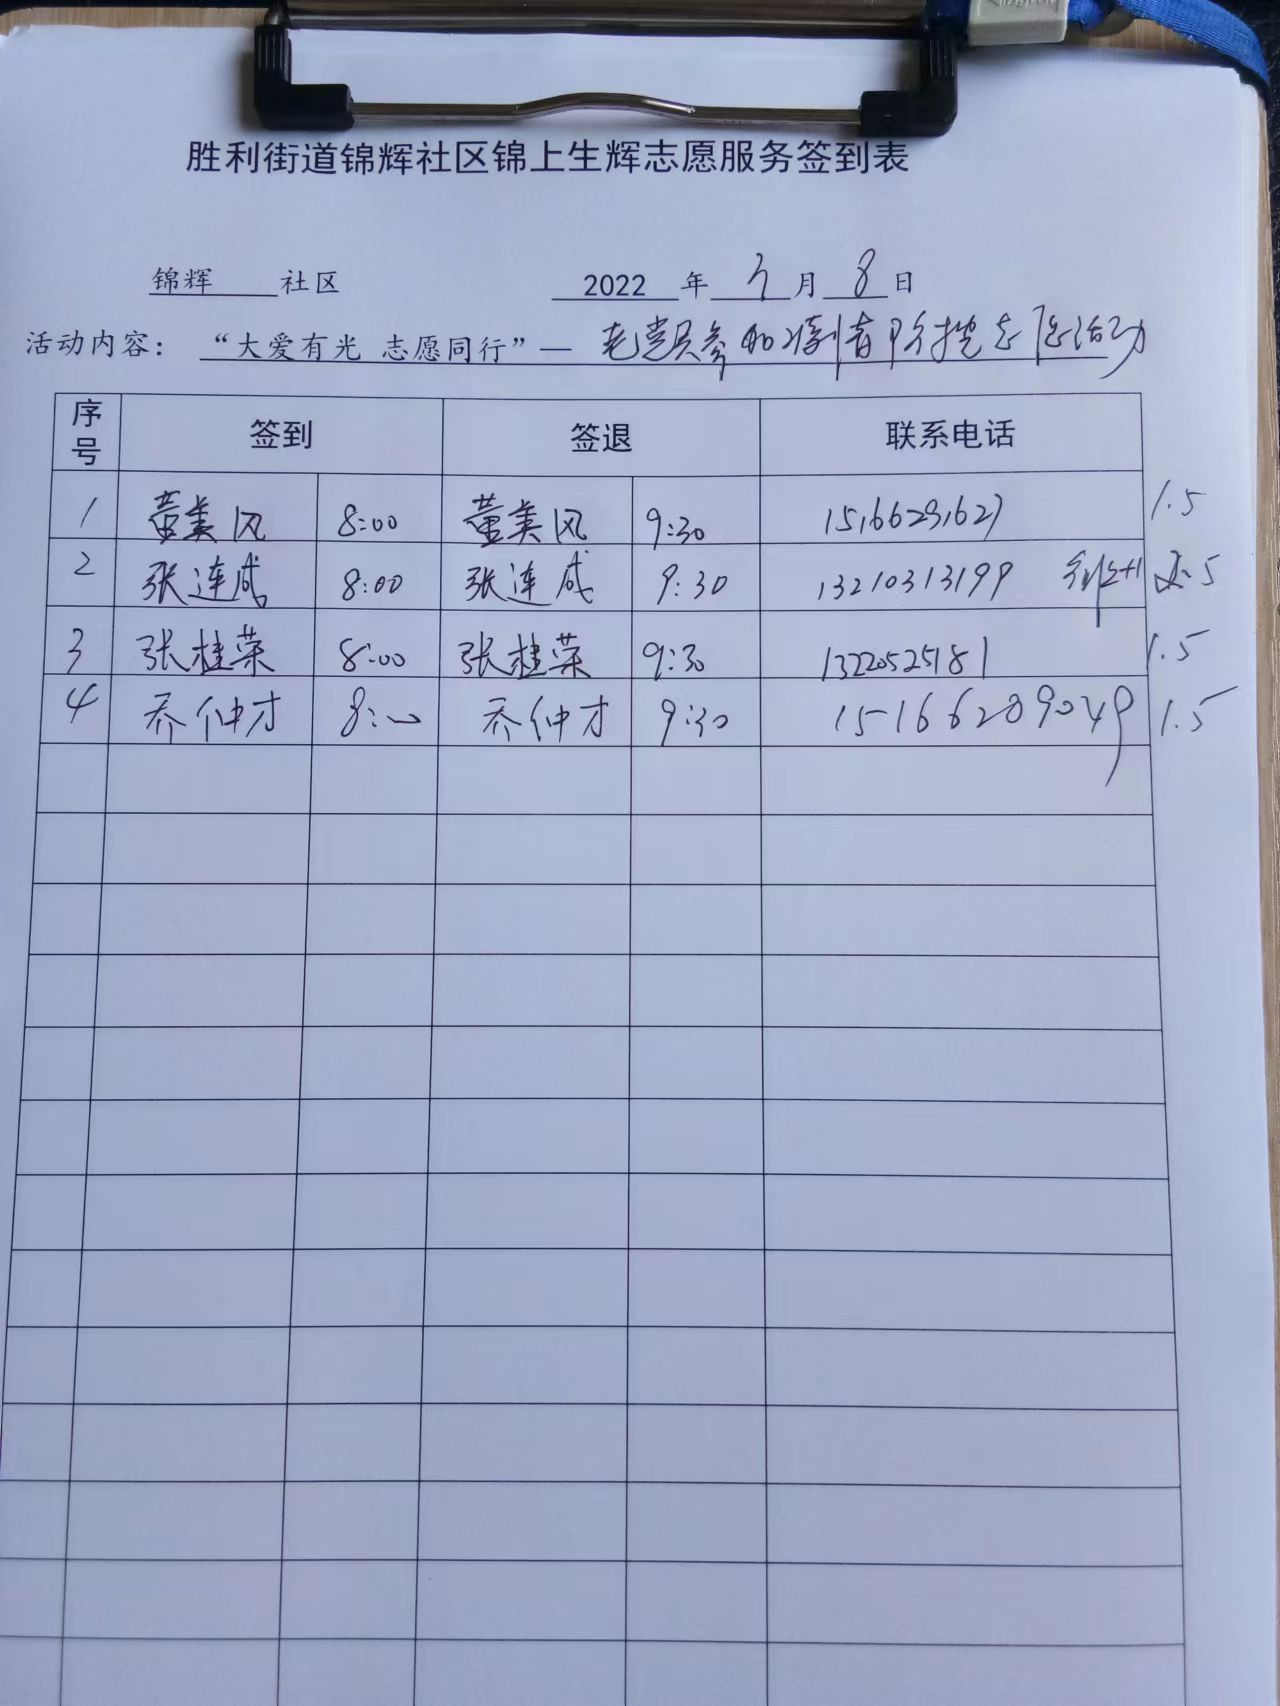 胜利街道锦辉社区锦上生辉志愿服务签到表
锦辉 社区 2022 年 月 8 日
活动内容：“大爱有光 志愿同行”— 老党员参加 志愿活动
序号 签到 签退 联系电话
1 董美风 8:00 董美风 9:30 15166291627 1.5
2 张连成 8:00 张连成 9:30 13210313199
3 张桂荣 8:00 张桂荣 9:30 13220525181 1.5
4 乔仲才 8:00 乔仲才 9:30 15166289049 1.5